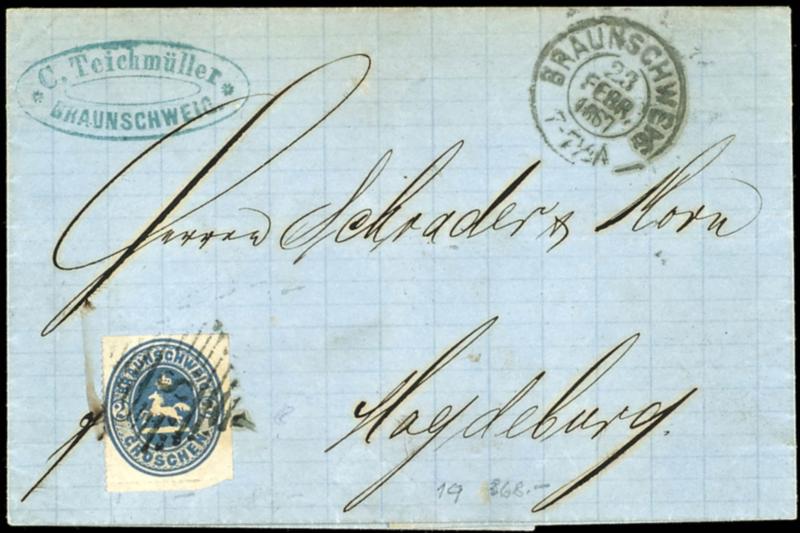 * C. Teichmüller *
BRAUNSCHWEIG.
BRAUNSCHWEIG
23
FEBR.
1867
Herren Schrader & Korn
Magdeburg.
BRAUNSCHWEIG
2
GROSCHEN
19 368.-